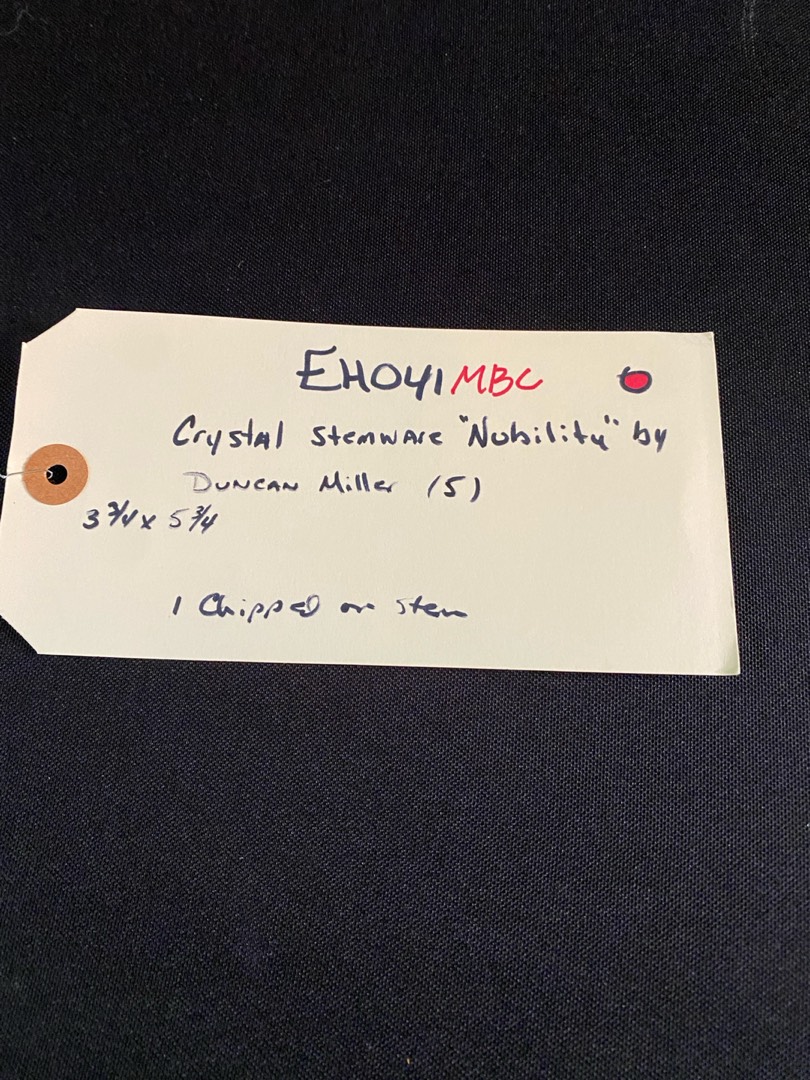 EH041MBC
Crystal Stemware "Nobility" by
Duncan Miller (5)
3 3/4 x 5 3/4
1 Chipped on stem